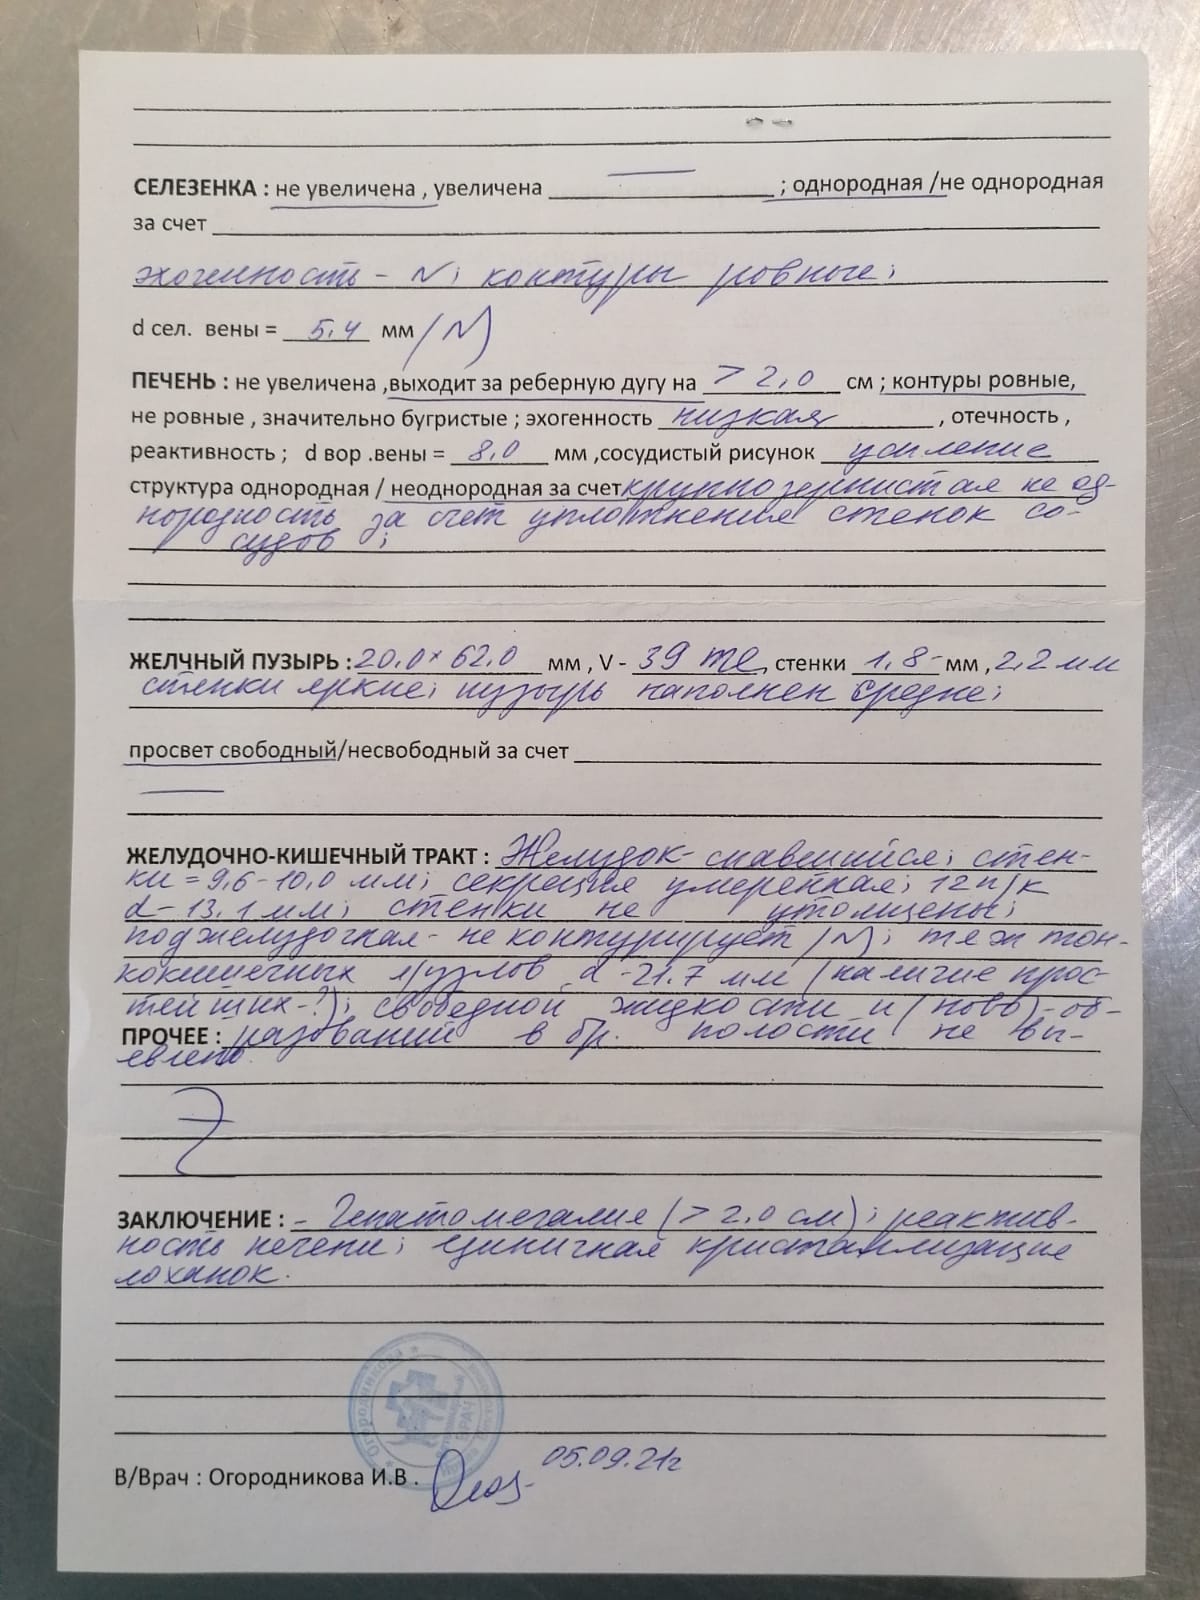 СЕЛЕЗЕНКА : не увеличена , увеличена ; однородная /не однородная
за счет
эхогенность - N; контуры ровные;
d сел. вены = 5,4 мм (N)
ПЕЧЕНЬ : не увеличена ,выходит за реберную дугу на > 2,0 см ; контуры ровные,
не ровные , значительно бугристые ; эхогенность низкая , отечность ,
реактивность ; d вор .вены = 8,0 мм ,сосудистый рисунок усиление
структура однородная / неоднородная за счет крупнозернистая не од-
нородность за счет уплотнения стенок со-
судов ;
ЖЕЛЧНЫЙ ПУЗЫРЬ : 20,0 × 62,0 мм , V - 39 те, стенки 1,8 - мм , 2,2 мм
стенки яркие; пузырь наполнен средне;
просвет свободный/несвободный за счет
ЖЕЛУДОЧНО-КИШЕЧНЫЙ ТРАКТ : Желудок - спавшийся; стен-
ки = 9,6 - 10,0 мм; секреция умеренная; 12 п/к
d - 13,1 мм; стенки не утолщены;
поджелудочная - не контурирует (N); тяж тон-
кокишечных л/узлов d - 21.7 мм (наличие прос-
тейших - ?); свободной жидкости и (ново) - об-
ПРОЧЕЕ : разований в бр. полости не вы-
явлено.
ЗАКЛЮЧЕНИЕ : - Гепатомегалия (> 2,0 см); реактив-
ность печени; единичная кристаллизация
лоханок.
Огородникова
ВРАЧ
05.09.21г
В/Врач : Огородникова И.В .